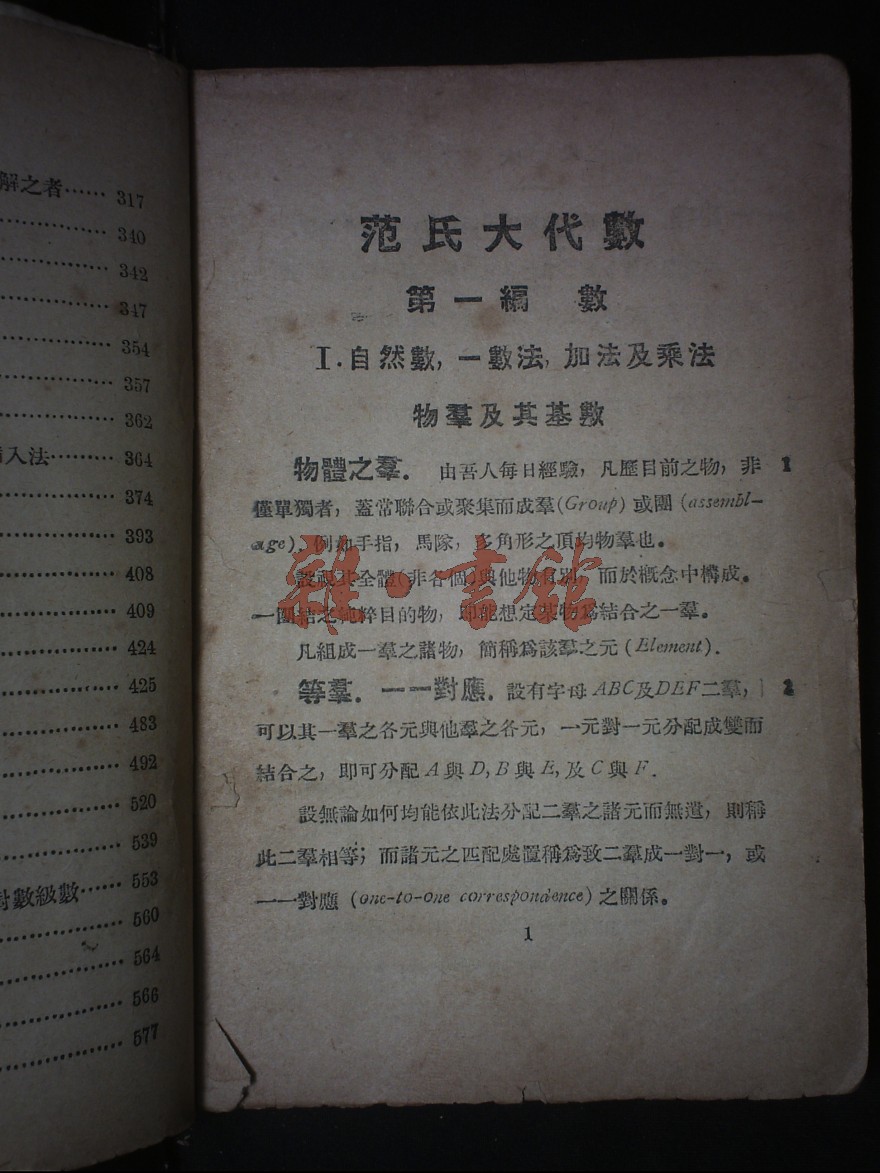 解之者…… 317
340
342
347
354
357
362
入法……… 364
374
393
408
409
424
425
483
492
520
539
對數級數…… 553
560
564
566
577
范氏大代數
第一編 數
I. 自然數, 一數法, 加法及乘法
物羣及其基數
物體之羣. 由吾人每日經驗, 凡歷目前之物, 非 1
僅單獨者, 蓋常聯合或聚集而成羣(Group) 或團 (assembl-
age), 例如手指, 馬隊, 多角形之頂均物羣也。
設視其全體(非各個)與他物有別, 而於概念中構成。
一團結之純粹目的物, 即能想定某物爲結合之一羣。
凡組成一羣之諸物, 簡稱爲該羣之元 (Element).
等羣. 一一對應. 設有字母 ABC及DEF二羣, 2
可以其一羣之各元與他羣之各元, 一元對一元分配成雙而
結合之, 即可分配 A 與 D, B 與 E, 及 C 與 F.
設無論如何均能依此法分配二羣之諸元而無遺, 則稱
此二羣相等; 而諸元之匹配處置稱爲致二羣成一對一, 或
一一對應 (one-to-one correspondence) 之關係。
1
雜·書館